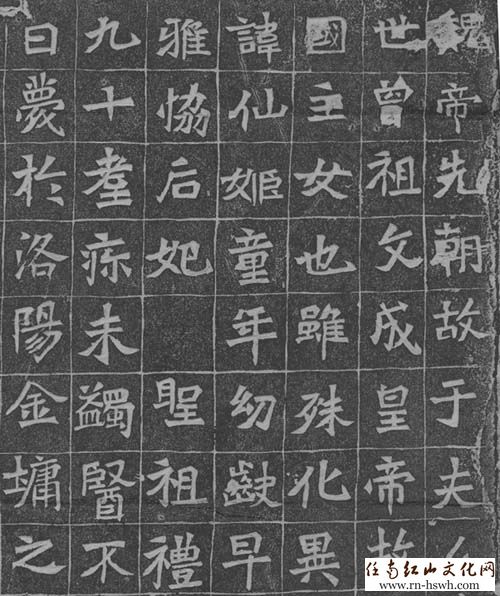 魏帝先朝故于夫人
世曾祖文成皇帝故
國主女也雖殊化異
諱仙姬童年幼齔早
雅恊后妃聖祖禮
九十耋疹未蠲醫不
日薨於洛陽金墉之
任南红山文化网
www.rn-hswh.com